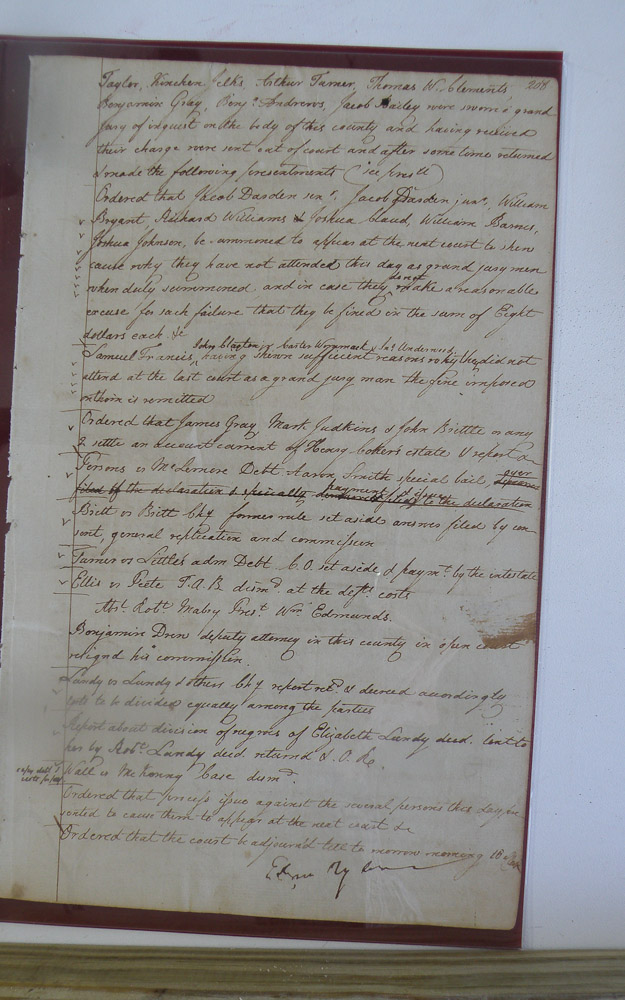 208
Taylor, Kinchen Felts, Arthur Turner, Thomas W. Clements
Benjamin Gray, Benj.n Andrews, Jacob Bailey were sworn a grand
jury of inquest on the body of this county and having received
their charge were sent out of court and after some time returned
& made the following presentments
Ordered that Jacob Darden sen.r, Jacob Darden jun.r, William
Bryant, Richard Williams & Joshua Claud, William Barnes,
Joshua Johnson, be summoned to appear at the next court to shew
cause why they have not attended this day as grand jury men
when duly summoned and in case they do not make a reasonable
excuse for such failure that they be fined in the sum of Eight
dollars each &c
John Clayton, Carter Wommack & Jas. Underwood
Samuel Francis, having shewn sufficient reasons why they did not
attend at the last court as a grand jury man the fine imposed
on them is remitted
Ordered that James Gray, Mark Judkins & John Brittle or any
2 settle an account current of Henry estate & report &c
Persons vs McLemore Debt Aaron Smith special bail, oyer
filed of the declaration & specialty payment to the declaration
Britt vs Britt Ch.y former rule set aside answer filed by con
sent, general replication and commission
Turner vs Littles adm Debt C.O. set aside & paym.t by the intestate
Ellis vs Peete T.A.B. dism.d at the def.ts costs
Abs.t Rob.t Mabry Pres.t W.m Edmunds.
Benjamin Drew deputy attorney in this county in open court
resign'd his commission
Lundy vs Lundy & others Ch.y report ret.d & decreed accordingly
costs to be divided equally among the parties
Report about division of negroes of Elizabeth Lundy decd. lent to
her by Rob.t Lundy decd. returned & O.R.
Wall vs McKenny Case dism.d
Ordered that process issue against the several persons this day pre
sented to cause them to appear at the next court &c
Ordered that the court be adjourn'd till to morrow morning 10